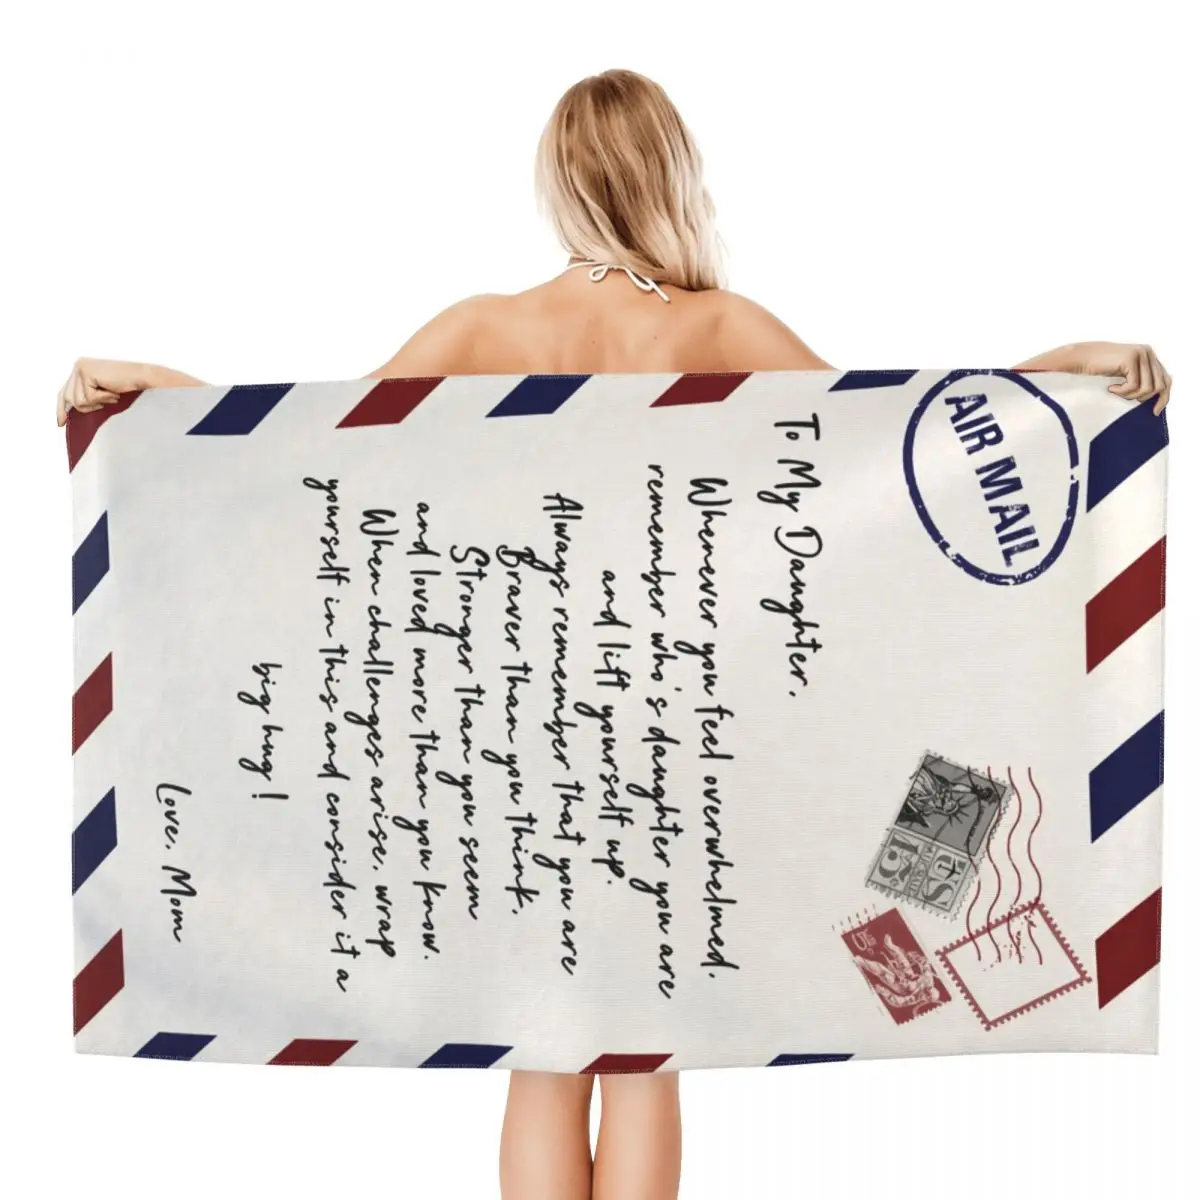 AIR MAIL
To My Daughter,
Whenever you feel overwhelmed,
remember who's daughter you are
and lift yourself up.
Always remember that you are
Braver than you think,
Stronger than you seem
and loved more than you know.
When challenges arise, wrap
yourself in this and consider it a
big hug!
Love, Mom